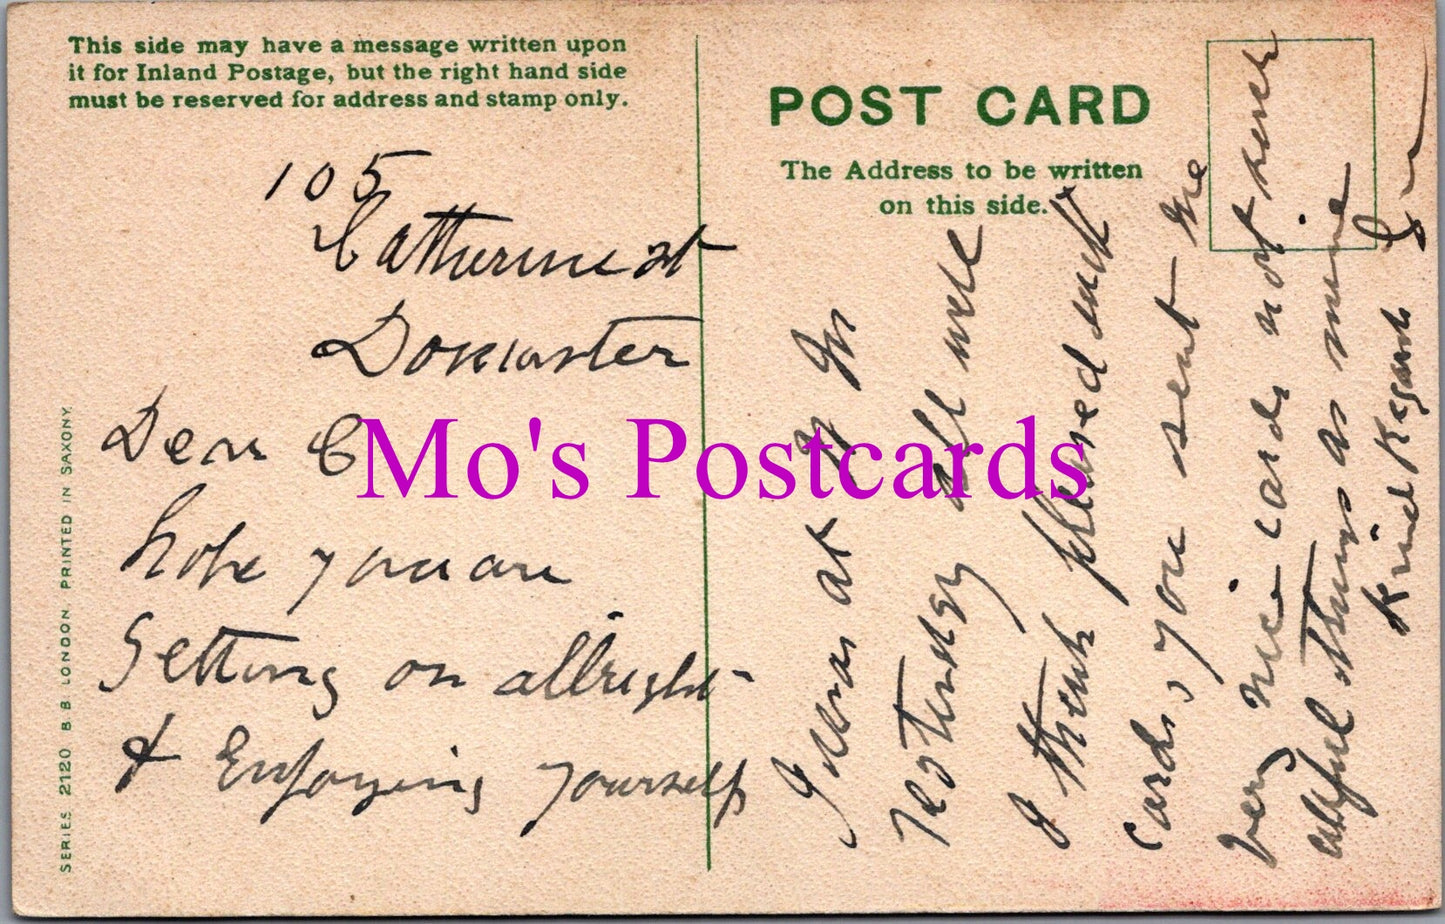 This side may have a message written upon
it for Inland Postage, but the right hand side
must be reserved for address and stamp only.
POST CARD
The Address to be written
on this side.
SERIES 2120 B B LONDON. PRINTED IN SAXONY.
105
Catherine St
Doncaster
Dear C
hope you are
Getting on allright
& Enjoying yourself
I was at
yesterday all well
I think pleased with
cards, you sent me
very nice cards not such
things as mine
Kind Regards
Mo's Postcards